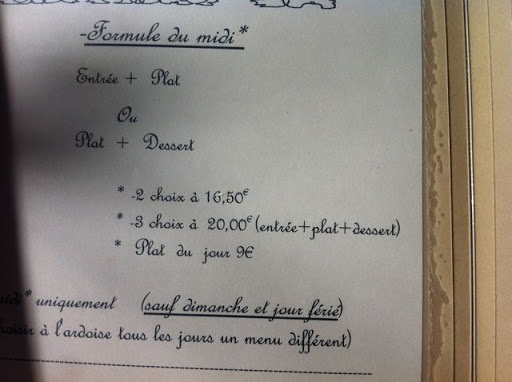 -Formule du midi*
Entrée + Plat
Ou
Plat + Dessert
* -2 choix à 16,50€
* -3 choix à 20,00€ (entrée+plat+dessert)
* Plat du jour 9€
midi* uniquement (sauf dimanche et jour férié)
choisir à l'ardoise tous les jours un menu différent)